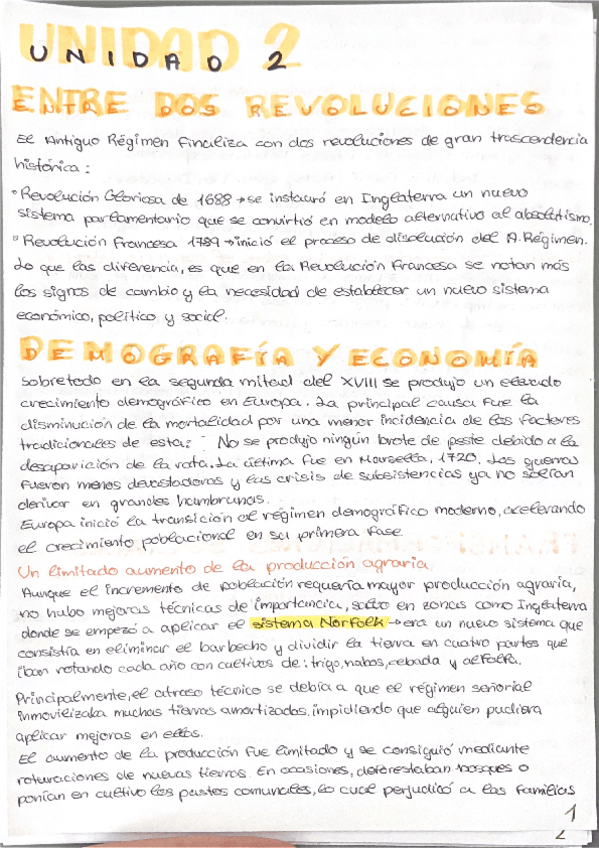 UNIDAD 2
ENTRE DOS REVOLUCIONES
El Antiguo Régimen finaliza con dos revoluciones de gran trascendencia
histórica:
° Revolución Gloriosa de 1688 → se instauró en Inglaterra un nuevo
sistema parlamentario que se convirtió en modelo alternativo al absolutismo.
° Revolución Francesa 1789 → inició el proceso de disolución del A. Régimen.
Lo que las diferencia, es que en la Revolución Francesa se notan más
los signos de cambio y la necesidad de establecer un nuevo sistema
económico, político y social.
DEMOGRAFÍA Y ECONOMÍA
Sobretodo en la segunda mitad del XVIII se produjo un elevado
crecimiento demográfico en Europa. La principal causa fue la
disminución de la mortalidad por una menor incidencia de los factores
tradicionales de esta: No se produjo ningún brote de peste debido a la
desaparición de la rata. La última fue en Marsella, 1720. Las guerras
fueron menos devastadoras y las crisis de subsistencias ya no solían
derivar en grandes hambrunas.
Europa inició la transición al régimen demográfico moderno, acelerando
el crecimiento poblacional en su primera fase.
Un limitado aumento de la producción agraria
Aunque el incremento de población requería mayor producción agraria,
no hubo mejoras técnicas de importancia, salvo en zonas como Inglaterra
donde se empezó a aplicar el sistema Norfolk → era un nuevo sistema que
consistía en eliminar el barbecho y dividir la tierra en cuatro partes que
iban rotando cada año con cultivos de: trigo, nabos, cebada y alfalfa.
Principalmente, el atraso técnico se debía a que el régimen señorial
inmovilizaba muchas tierras amortizadas, impidiendo que alguien pudiera
aplicar mejoras en ellas.
El aumento de la producción fue limitado y se consiguió mediante
roturaciones de nuevas tierras. En ocasiones, deforestaban bosques o
ponían en cultivo los pastos comunales, lo cual perjudicó a las familias
1
2